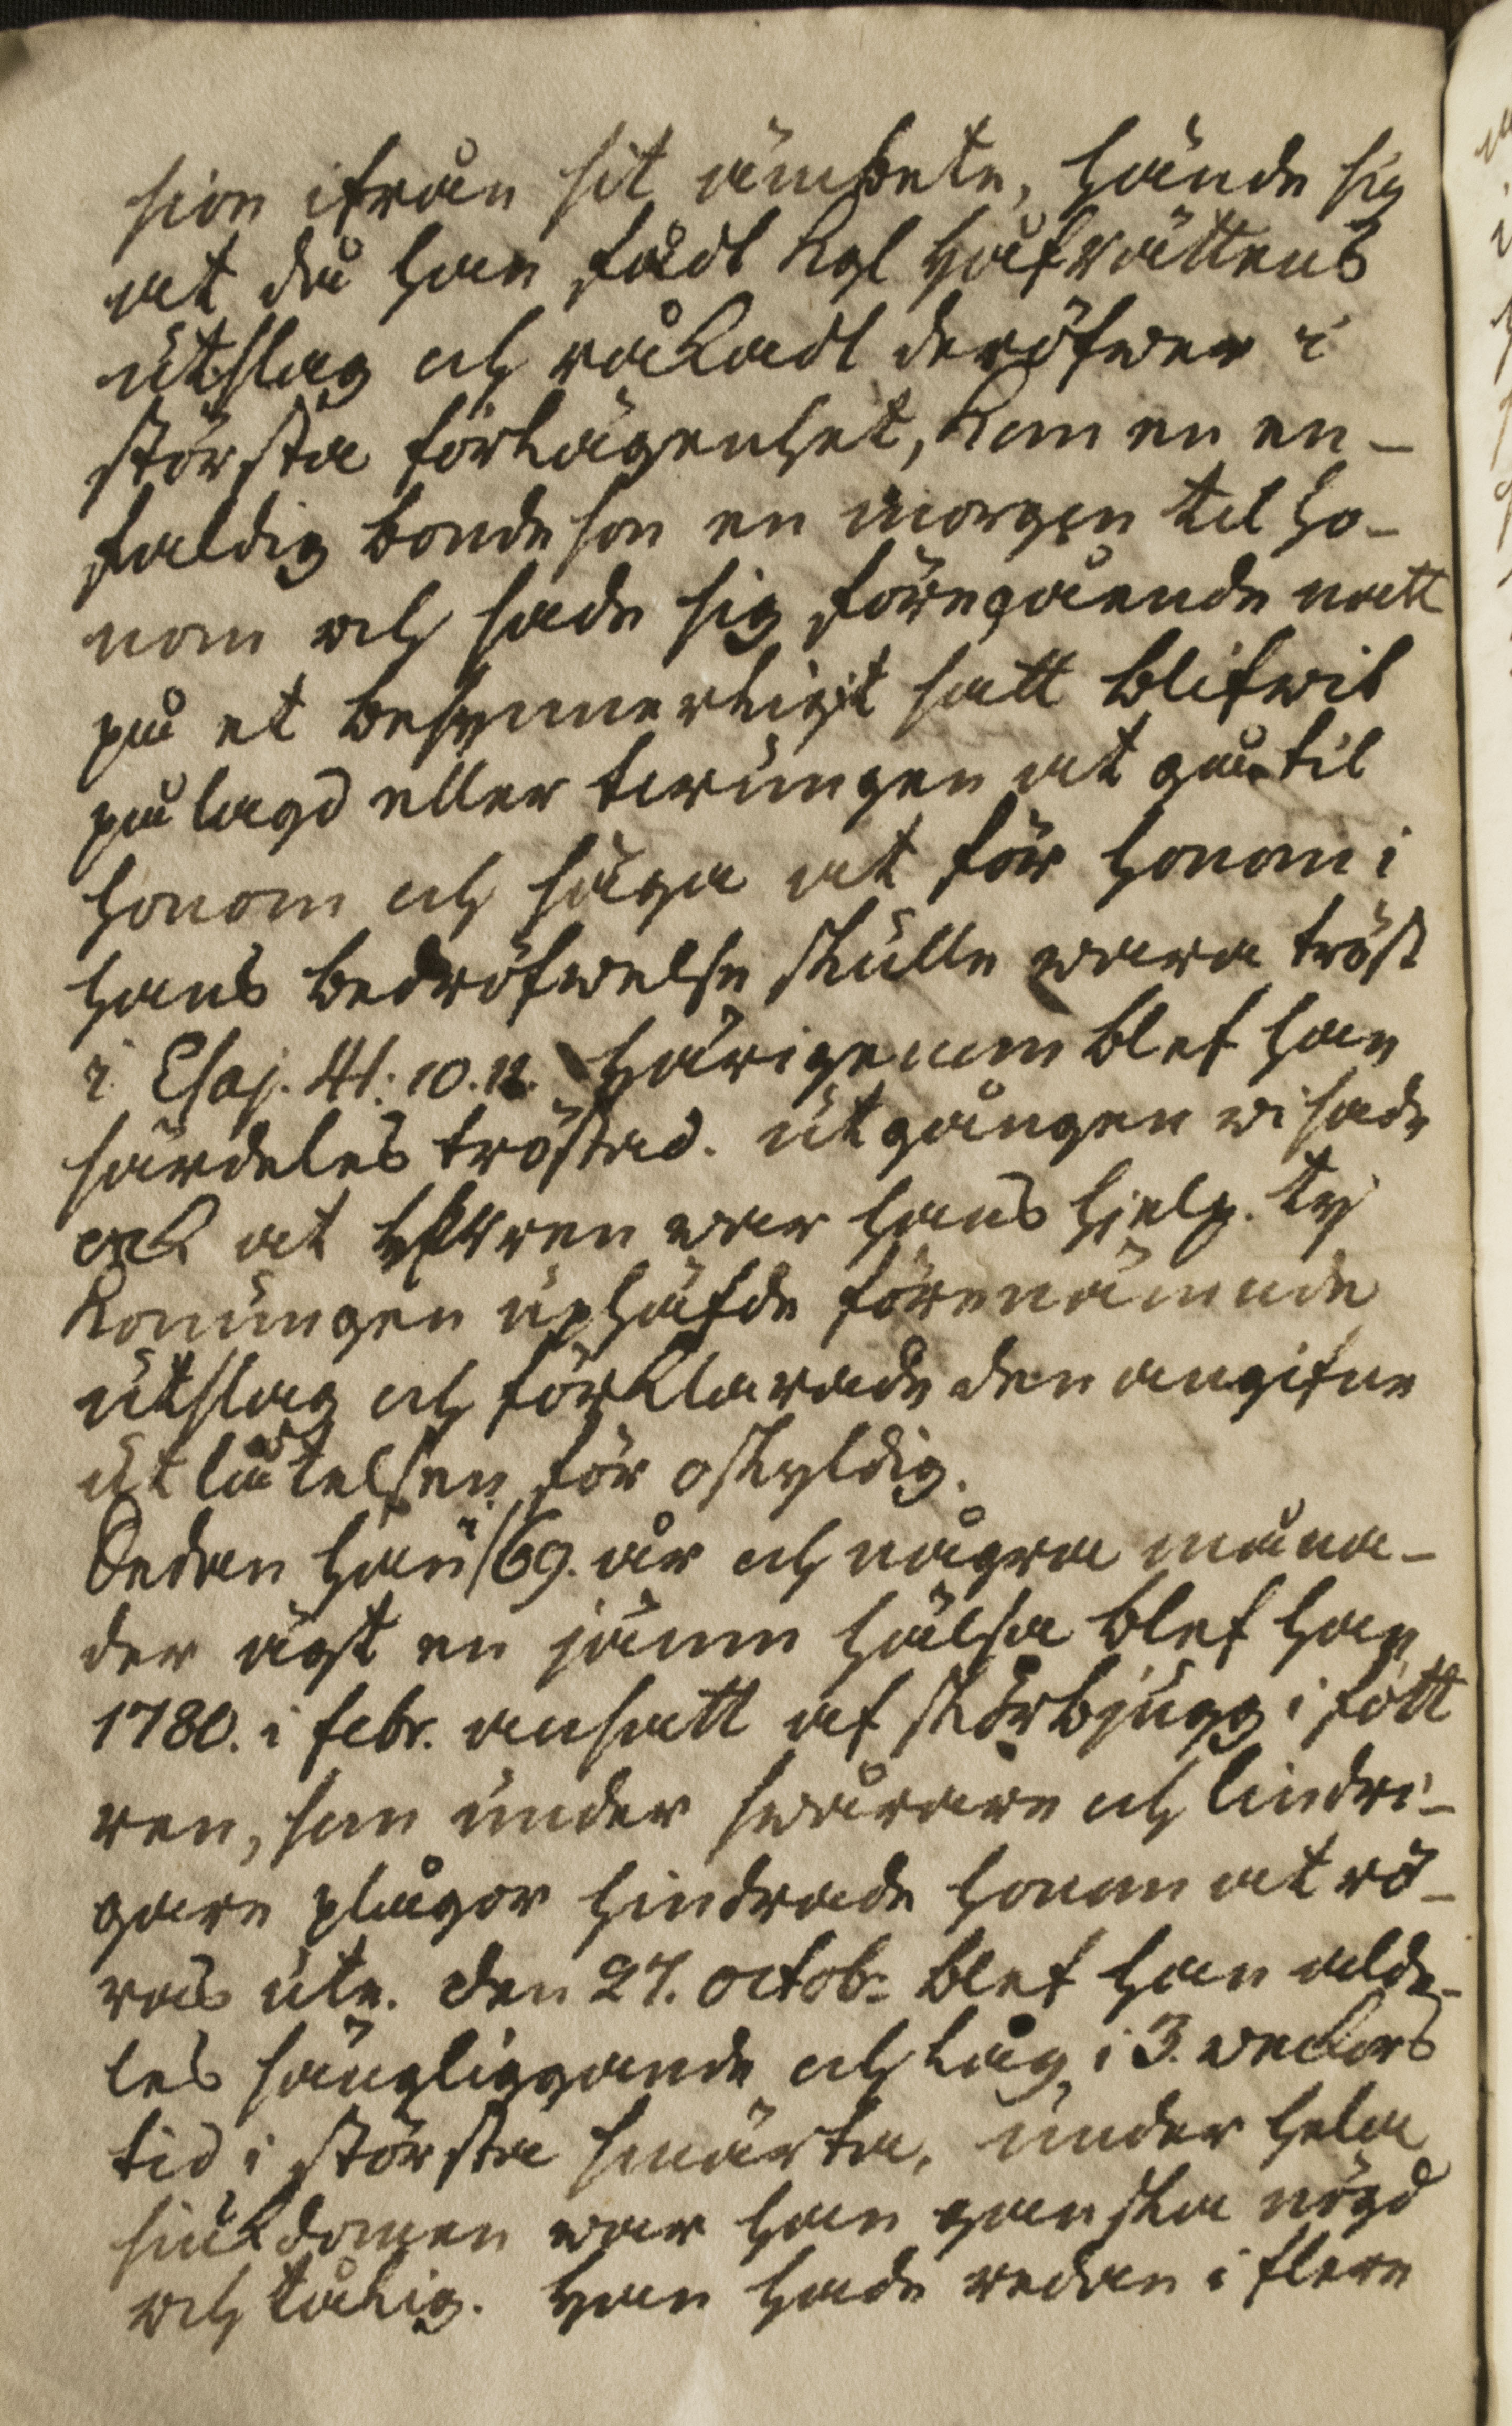 sion ifrån sit ämbete, hände sig
at då han fådt Kgl Håfrättens
utslag och råkadt deröfwer i
största förlägenhet, kom en en-
faldig bonde son en morgon til ho-
nom och sade sig föregående natt
på et besynnerligit sätt blifwit
på lagd eller twungen at gå til
honom och säga at för honom i
hans bedröfwelse skulle wara tröst
i Esaj. 41: 10. 12. härigenom blef han
särdeles tröstad. utgången wisade
ock at HErren war hans hjelp. ty
Konungen uphäfde förenämnde
utslag och förklarade den angifne
utlåtelsen för oskyldig.
Sedan han i 69. år och några måna-
der ägt en jämn hälsa blef han
1780. i febr. ansatt af skörbjugg i fött
ren, som under swårare och lindri-
gare plågor hindrade honom at rö-
ras ute. den 27. octob: blef han alde-
les sängliggande och låg i 3. weckors
tid i största smärta, under hela
siukdomen war han ganska nögd
och tålig. Han hade redan i flere